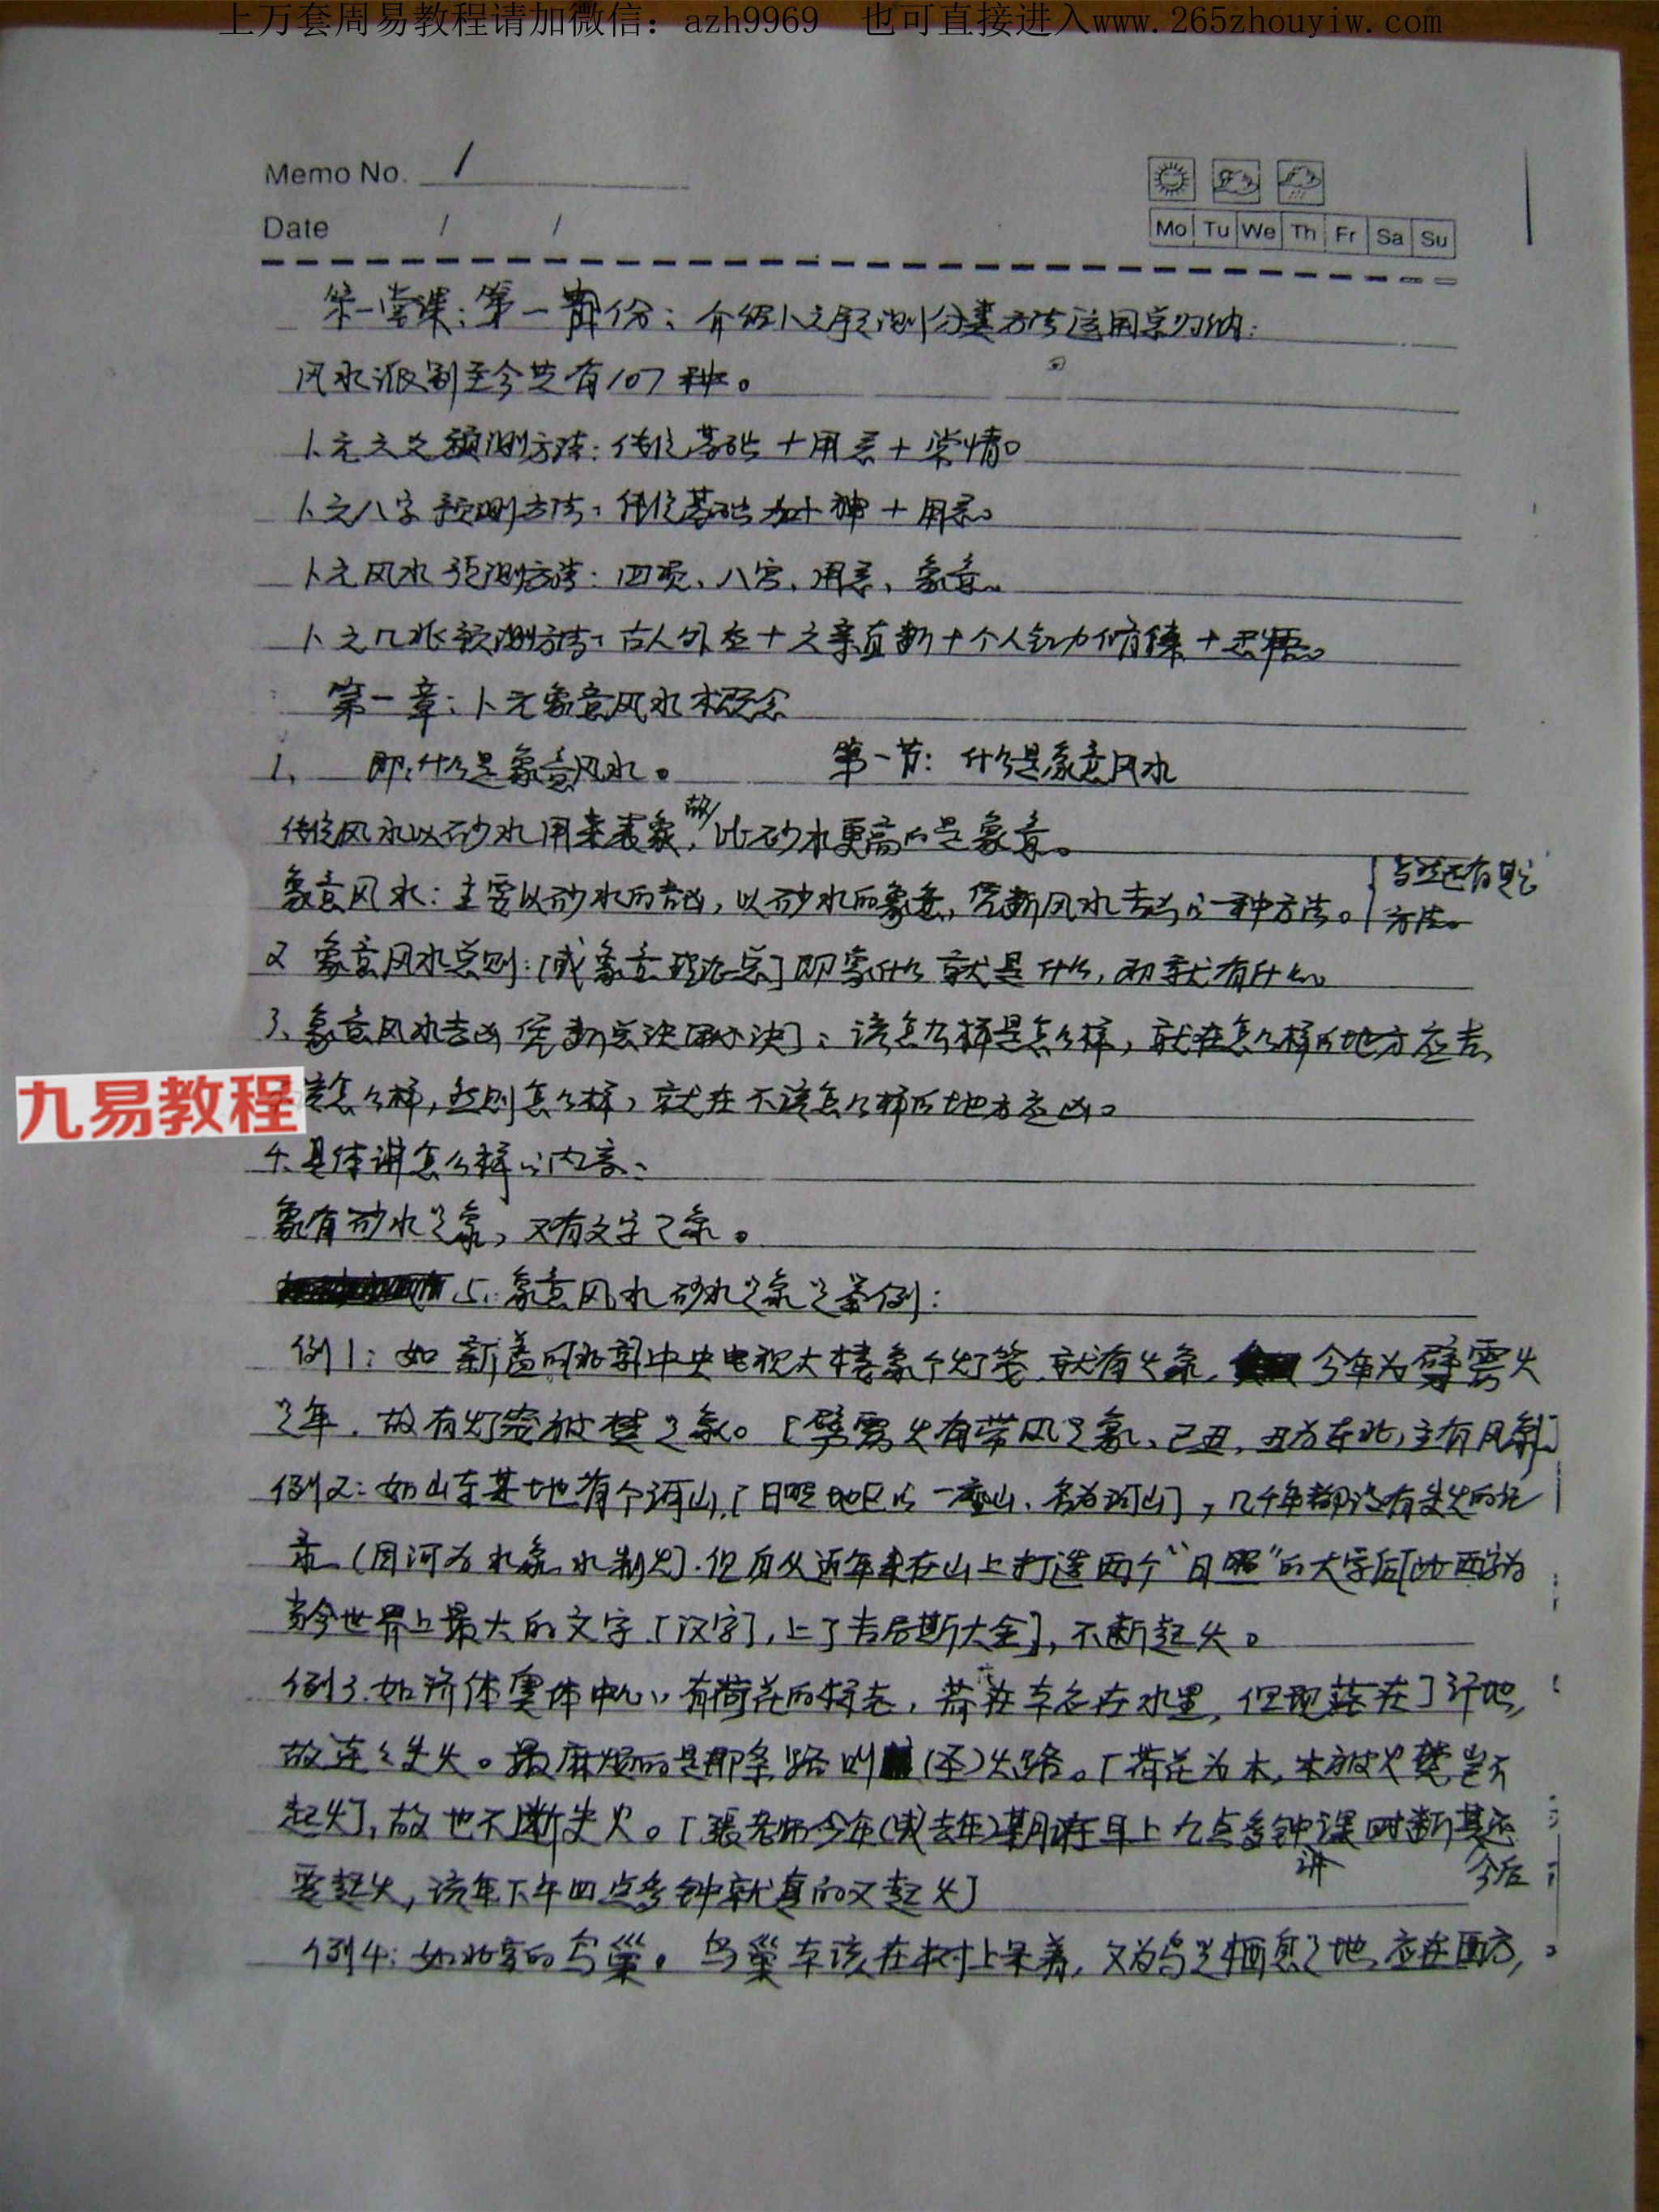 上万套周易教程请加微信：azh9969 也可直接进入www.265zhouyiw.com
Memo No. 1
Date / /
Mo Tu We Th Fr Sa Su
第一堂课：第一部份：介绍卜元预测分类方法运用总归纳：
风水派别至今共有107种。
卜元六爻预测方法：传统基础＋用系＋常情。
卜元八字预测方法：传统基础加十神＋用系。
卜元风水预测方法：四灵、八宫、用系、象意。
卜元几派预测方法：古人外应＋六亲直断＋个人能力修练＋灵悟。
第一章：卜元象意风水概念
1、 即：什么是象意风水。 第一节：什么是象意风水
传统风水以砂水用来表象，故比砂水更高的是象意。
象意风水：主要以砂水的吉凶，以砂水的象意，凭断风水吉凶的一种方法。
方法。
2 象意风水总则：[或象意理论总]即象什么就是什么，即就有什么。
3、象意风水吉凶凭断总决：该怎么样是怎么样，就在怎么样的地方应吉，
该怎么样，否则怎么样，就在不该怎么样的地方应凶。
九易教程
4.具体讲怎么样的内容：
象有砂水之象，又有文字之象。
5、象意风水砂水之象之举例：
例1：如新盖的北京中央电视大楼象个灯笼，就有火象，今年为霹雳火
之年，故有灯笼被焚之象。[霹雳火有带风之象，己丑，丑为东北，主有风象]
例2：如山东某地有个河山，[日照地区的一座山，名为河山]，几千年都没有失火的记
录（因河为水象，水制火].但自从近年来在山上打造两个“日照”的大字后[此两字为
当今世界上最大的文字[汉字]，上了吉尼斯大全]，不断起火。
例3.如济体奥体中心，有荷花的样态，荷花本应在水里，但现落在了汗地，
故连连失火。最麻烦的是那条路叫（圣）火路。[荷花为木，木被火焚岂不
起火]，故也不断失火。[張老师今年(或去年)某月课在早上九点多钟讲课时断其还
今后
要起火，该年下午四点多钟就真的又起火]
例4：如北京的鸟巢。鸟巢本该在树上呆着，又为鸟之栖息之地，应在西方，